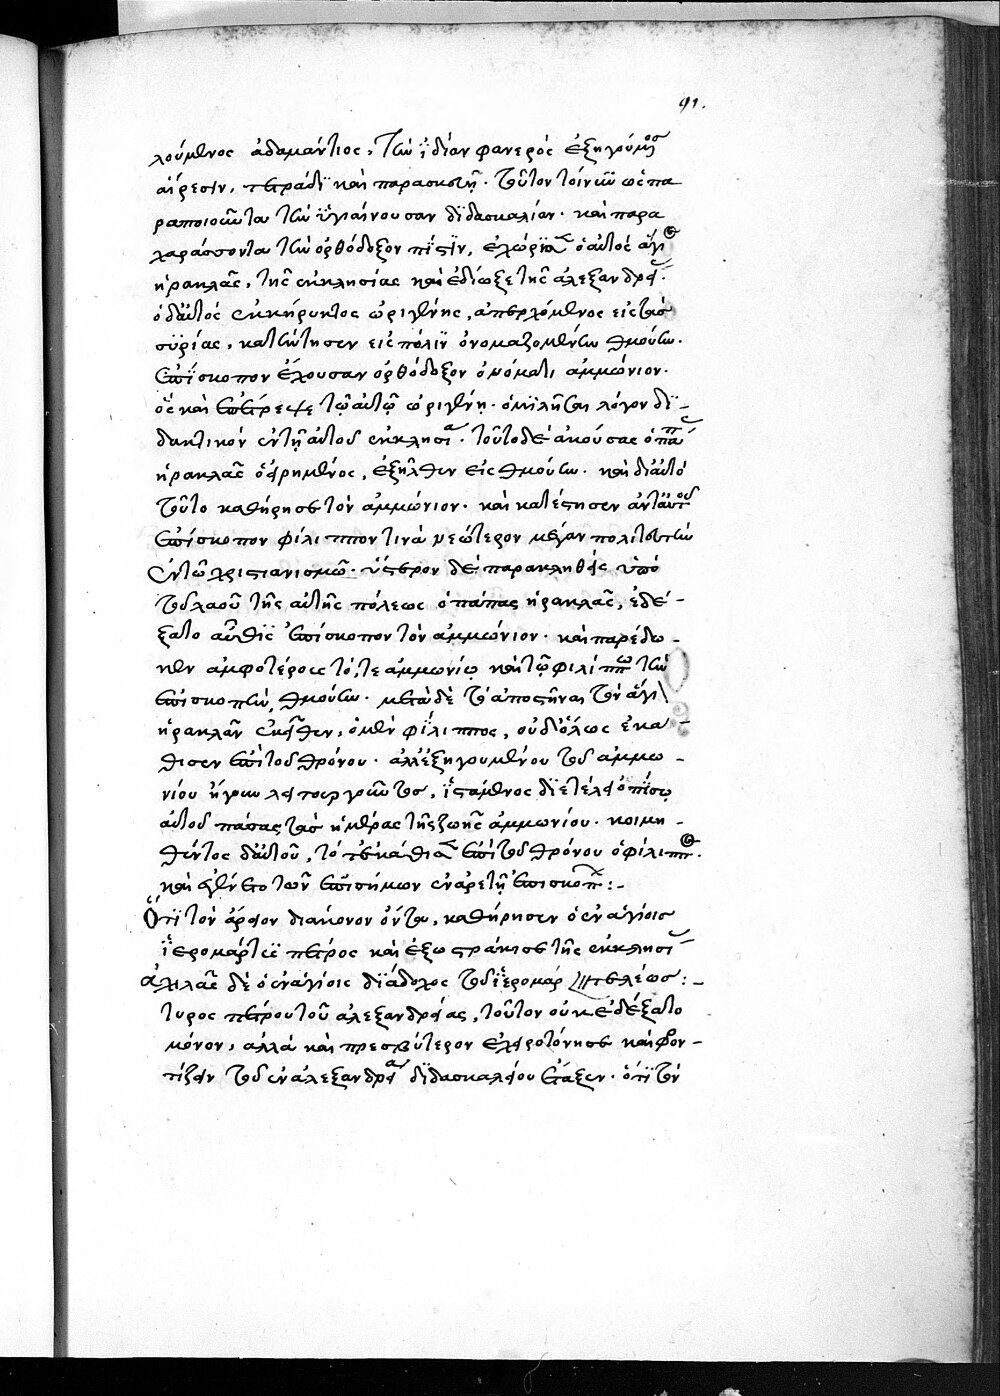 91.
λούμενος ἀδαμάντιος, τὴν ἰδίαν φανερῶς ἐξηγούμενος
αἵρεσιν, τετράδι καὶ παρασκευῇ. τοῦτον τοίνυν ὡς πα
ραποιοῦντα τὴν ὑγιαίνουσαν διδασκαλίαν. καὶ παρα
χαράσσοντα τὴν ὀρθόδοξον πίστιν, ἐχώρισεν ὁ αὐτὸς ἅγιος
ἡρακλᾶς, τῆς ἐκκλησίας καὶ ἐδίωξε τῆς ἀλεξανδρείας.
ὁ δ' αὐτὸς ἐκκήρυκτος ὠριγένης, ἀπερχόμενος εἰς τὰς
συρίας, κατήντησεν εἰς πόλιν ὀνομαζομένην θμούην.
ἐπίσκοπον ἔχουσαν ὀρθόδοξον ὀνόματι ἀμμώνιον.
ὃς καὶ ἐπέτρεψε τῷ αὐτῷ ὠριγένη. ὁμιλῆσαι λόγον δι-
δακτικὸν ἐν τῇ αὐτοῦ ἐκκλησία. τοῦτο δὲ ἀκούσας ὁ πάπας
ἡρακλᾶς ὁ εἰρημένος, ἐξῆλθεν εἰς θμούην. καὶ δι' αὐτὸ
τοῦτο καθῄρησε τὸν ἀμμώνιον. καὶ κατέστησεν ἀντ' αὐτοῦ
ἐπίσκοπον φίλιππόν τινὰ νεώτερον μέγαν πολιτευτὴν
ἐν τῷ χριστιανισμῷ. ὕστερον δὲ παρακληθεὶς ὑπὸ
τοῦ λαοῦ τῆς αὐτῆς πόλεως ὁ πάπας ἡρακλᾶς, ἐδέ-
ξατο αὖθις ἐπίσκοπον τὸν ἀμμώνιον. καὶ παρέδω-
κεν ἀμφοτέροις τό, τε ἀμμωνίῳ καὶ τῷ φιλίππῳ τὴν
ἐπισκοπὴν θμούην. μετὰ δὲ τὸ ἀποστῆναι τὸν ἅγιον
ἡρακλᾶν ἐκεῖθεν, ὁ μὲν φίλιππος, οὐδ' ὅλως ἐκα-
θισεν ἐπὶ τοῦ θρόνου. ἀλλ' ἐξηγουμένου τοῦ ἀμμω-
νίου ἤγουν λειτουργοῦντος, ἱστάμενος διετέλει ὀπίσω
αὐτοῦ πάσας τὰς ἡμέρας τῆς ζωῆς ἀμμωνίου. κοιμη-
θέντος δ' αὐτοῦ, τότε ἐκάθισεν ἐπὶ τοῦ θρόνου ὁ φίλιππος.
καὶ ἐγένετο τῶν ἐπισήμων ἐν ἀρετῇ ἐπισκόπων:-
Ὅτι τὸν ἄρειον διάκονον ὄντα, καθῄρησεν ὁ ἐν ἁγίοις
ἱερομάρτυς πέτρος καὶ ἐξωστράκισε τῆς ἐκκλησίας
τελέως:-
ἀχιλᾶς δὲ ὁ ἐν ἁγίοις διάδοχος τοῦ ἱερομάρ
τυρος πέτρου τοῦ ἀλεξανδρείας, τοῦτον οὐκ ἐδέξατο
μόνον, ἀλλὰ καὶ πρεσβύτερον ἐχειροτόνησε καὶ φρον-
τίζειν τοῦ ἐν ἀλεξανδρεία διδασκαλείου ἔταξεν. ὅτι τὸν